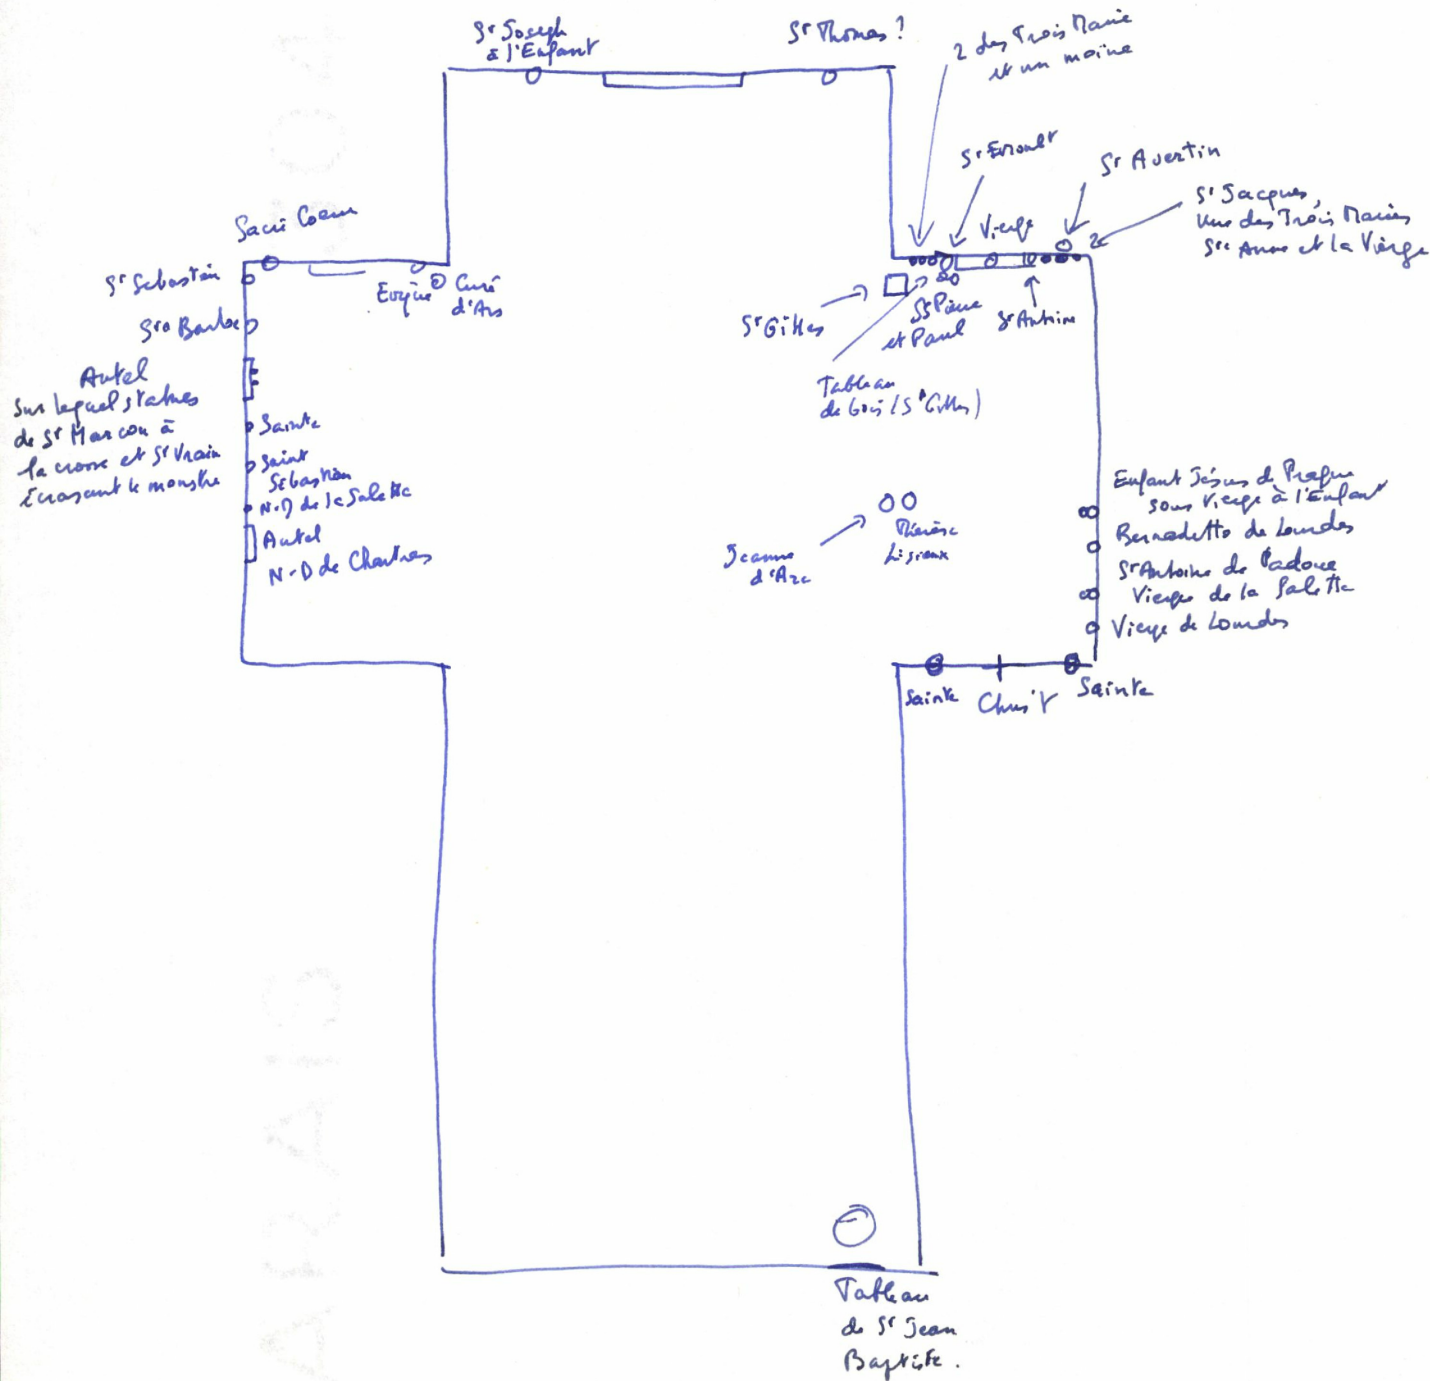 St Joseph
à l'Enfant
St Thomas ?
2 des Trois Marie
et un moine
St Evroult
St Avertin
St Jacques,
une des Trois Maries
Ste Anne et la Vierge
Vierge
Sacré Coeur
St Sebastien
Evêque
Curé
d'Ars
Ste Barbe
St Gilles
Sts Pierre
et Paul
St Antoine
Tableau
de (St Gilles)
Autel
sur lequel statues
de St Marcou à
la crosse et St Vrain
écrasant le monstre
Sainte
Saint
Sébastien
N-D de la Salette
Autel
N-D de Chartres
Jeanne
d'Arc
Thérèse
Lisieux
Enfant Jésus de Prague
sous Vierge à l'Enfant
Bernadette de Lourdes
St Antoine de Padoue
Vierge de la Salette
Vierge de Lourdes
Sainte
Christ
Sainte
Tableau
de St Jean
Baptiste.